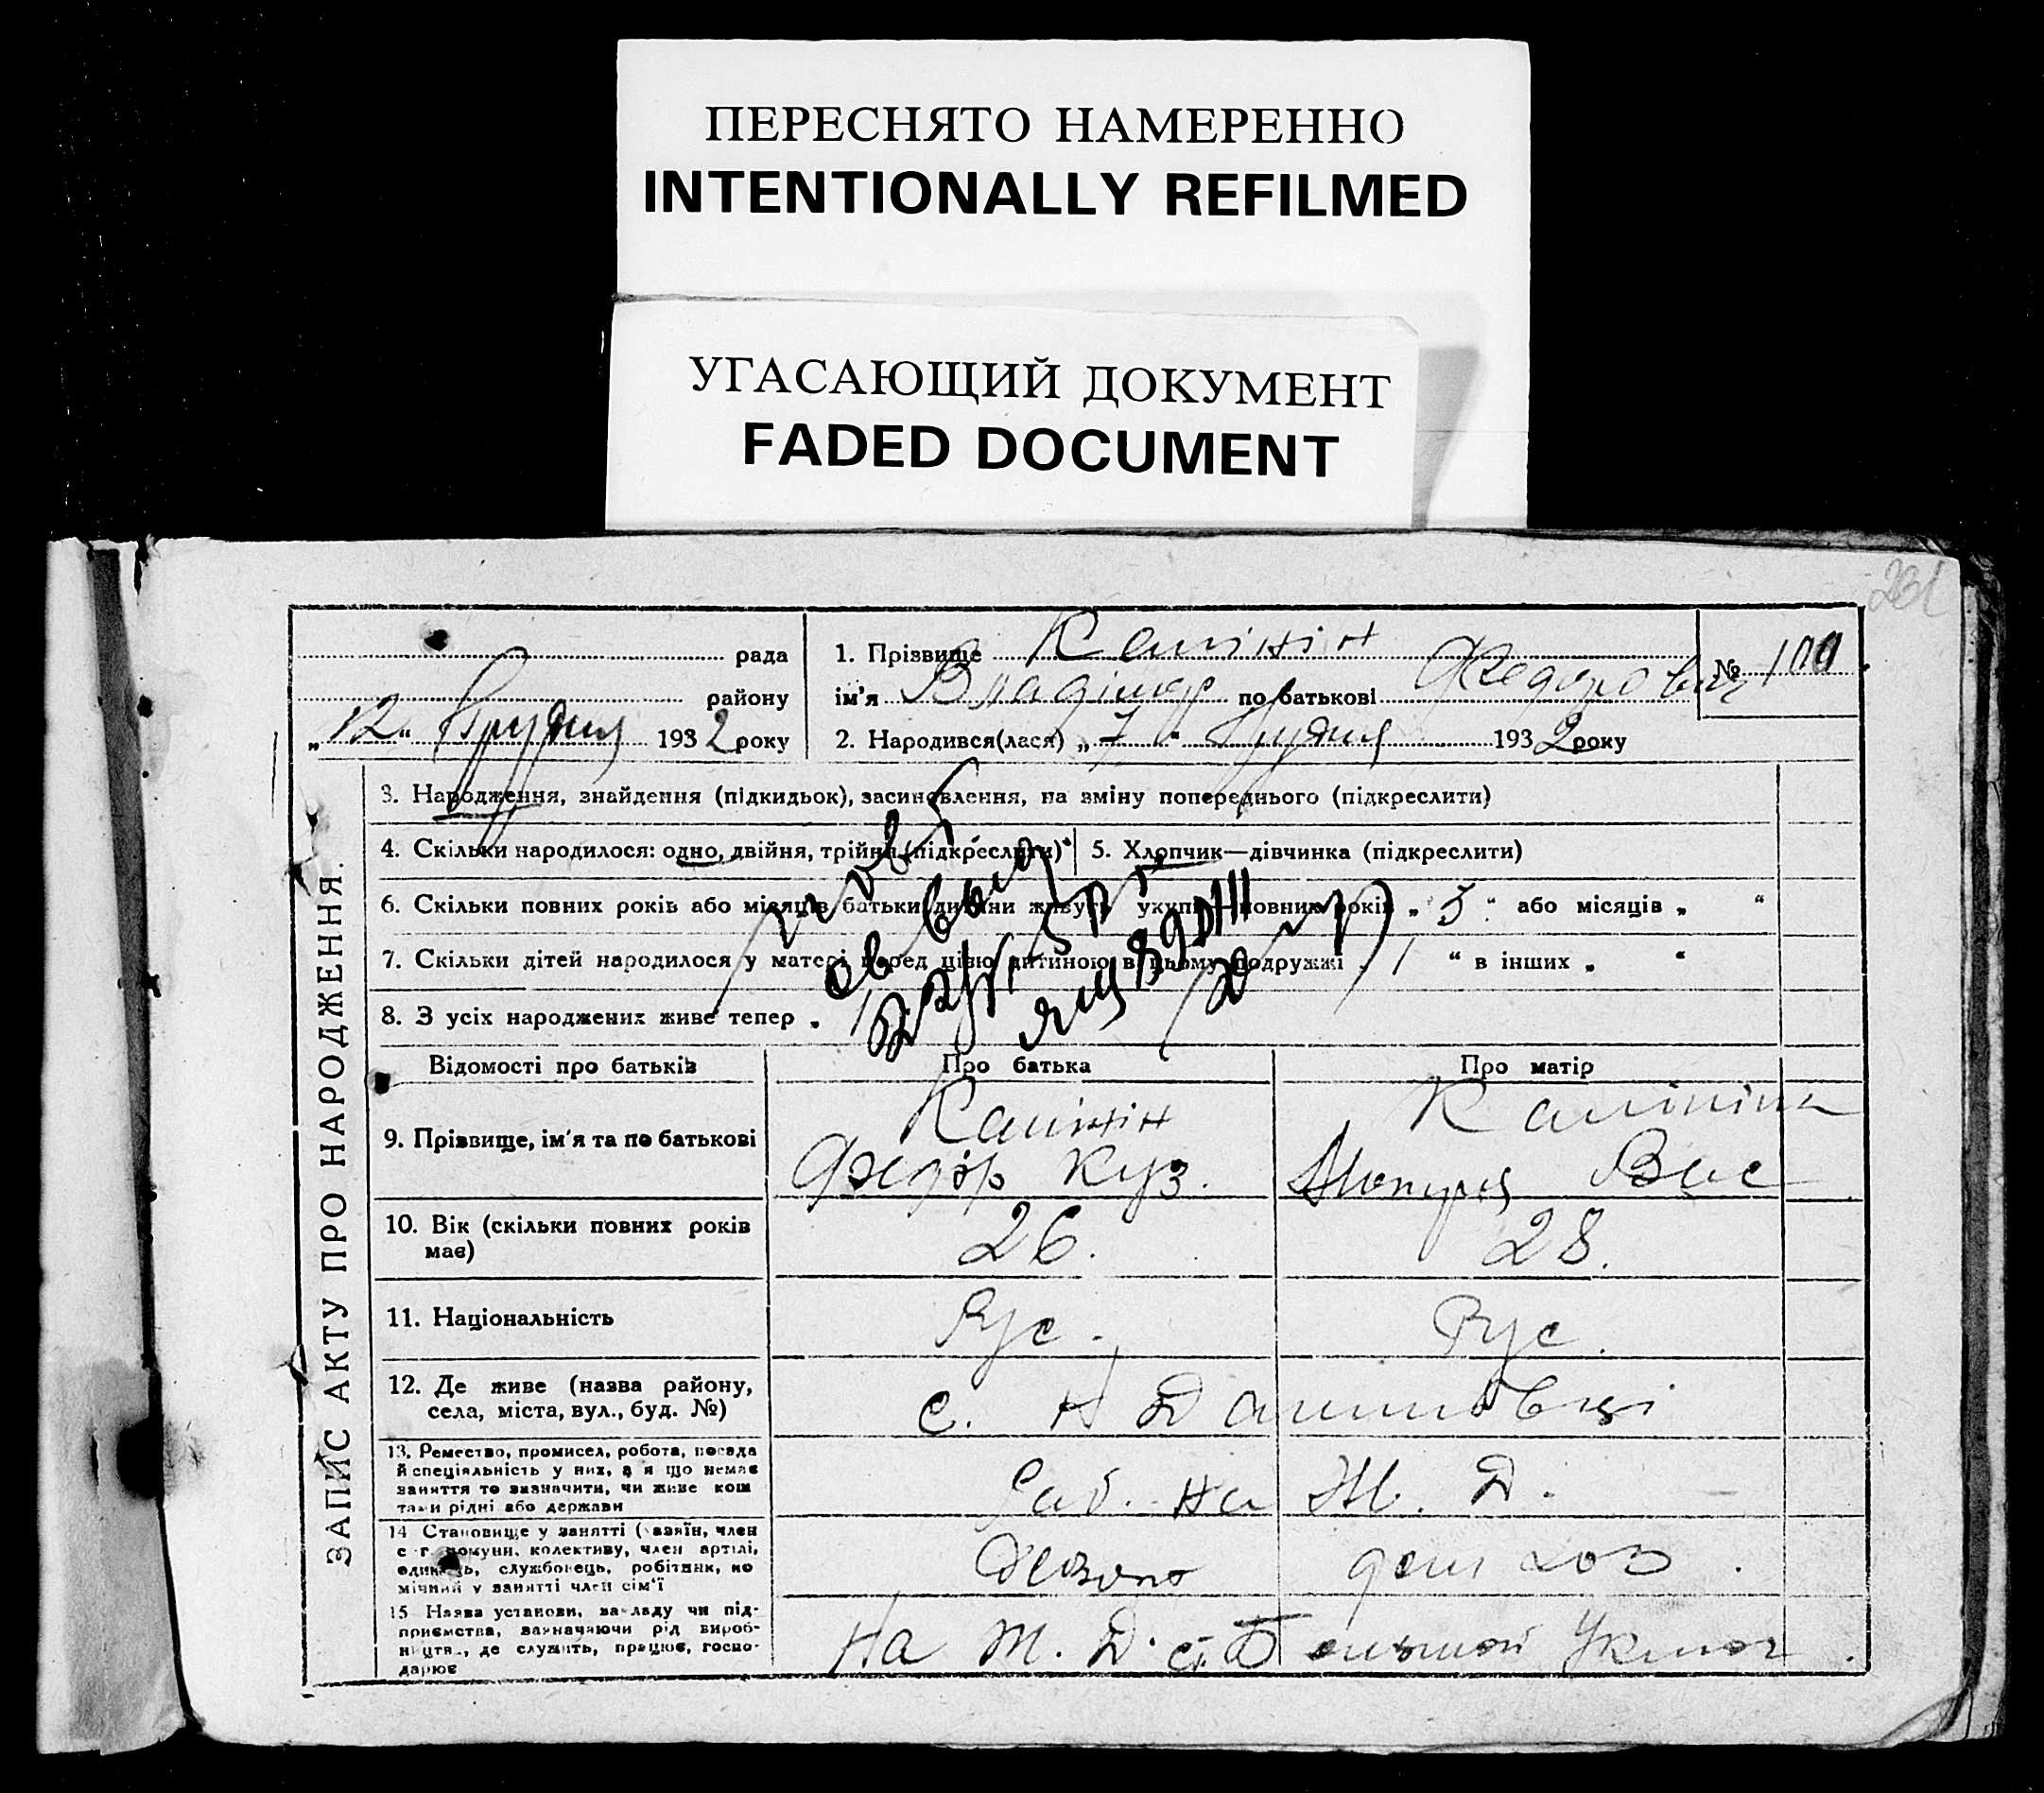 ПЕРЕСНЯТО НАМЕРЕННО
INTENTIONALLY REFILMED
УГАСАЮЩИЙ ДОКУМЕНТ
FADED DOCUMENT
231
рада
району
„12“ Грудня 1932 року
1. Прізвище Калінін
ім'я Владімір по батькові Федорович
№ 100
2. Народився(лася) „7“ Грудня 1932 року
ЗАПИС АКТУ ПРО НАРОДЖЕННЯ.
3. Народження, знайдення (підкидьок), засиновлення, на зміну попереднього (підкреслити)
4. Скільки народилося: одно, двійня, трійня (підкреслити) 5. Хлопчик—дівчинка (підкреслити)
6. Скільки повних років або місяців батьки дитини живуть укупі: повних років „5“ або місяців „ “
7. Скільки дітей народилося у матері перед цією дитиною в цьому подружжі „1“ в інших „ “
8. З усіх народжених живе тепер „1
Відомості про батьків Про батька Про матір
9. Прізвище, ім'я та по батькові
Калінін Калініна
Федір Куз. Вас
10. Вік (скільки повних років має)
26. 28.
11. Національність
Рус. Рус.
12. Де живе (назва району, села, міста, вул., буд. №)
с. Н Даниловці
13. Ремество, промисел, робота, посада й спеціяльність у них, а я що немає заняття то визначити, чи живе коштами рідні або держави
Раб. на Ж. Д.
14 Становище у занятті (хазяїн, член с.-г. комуни, колективу, член артілі, одинець, службовець, робітник, помічний у занятті член сім'ї
дом хоз.
15 Назва установи, закладу чи підприємства, зазначаючи рід виробництва, де служить, працює, господарює
на Ж. Д. ст.